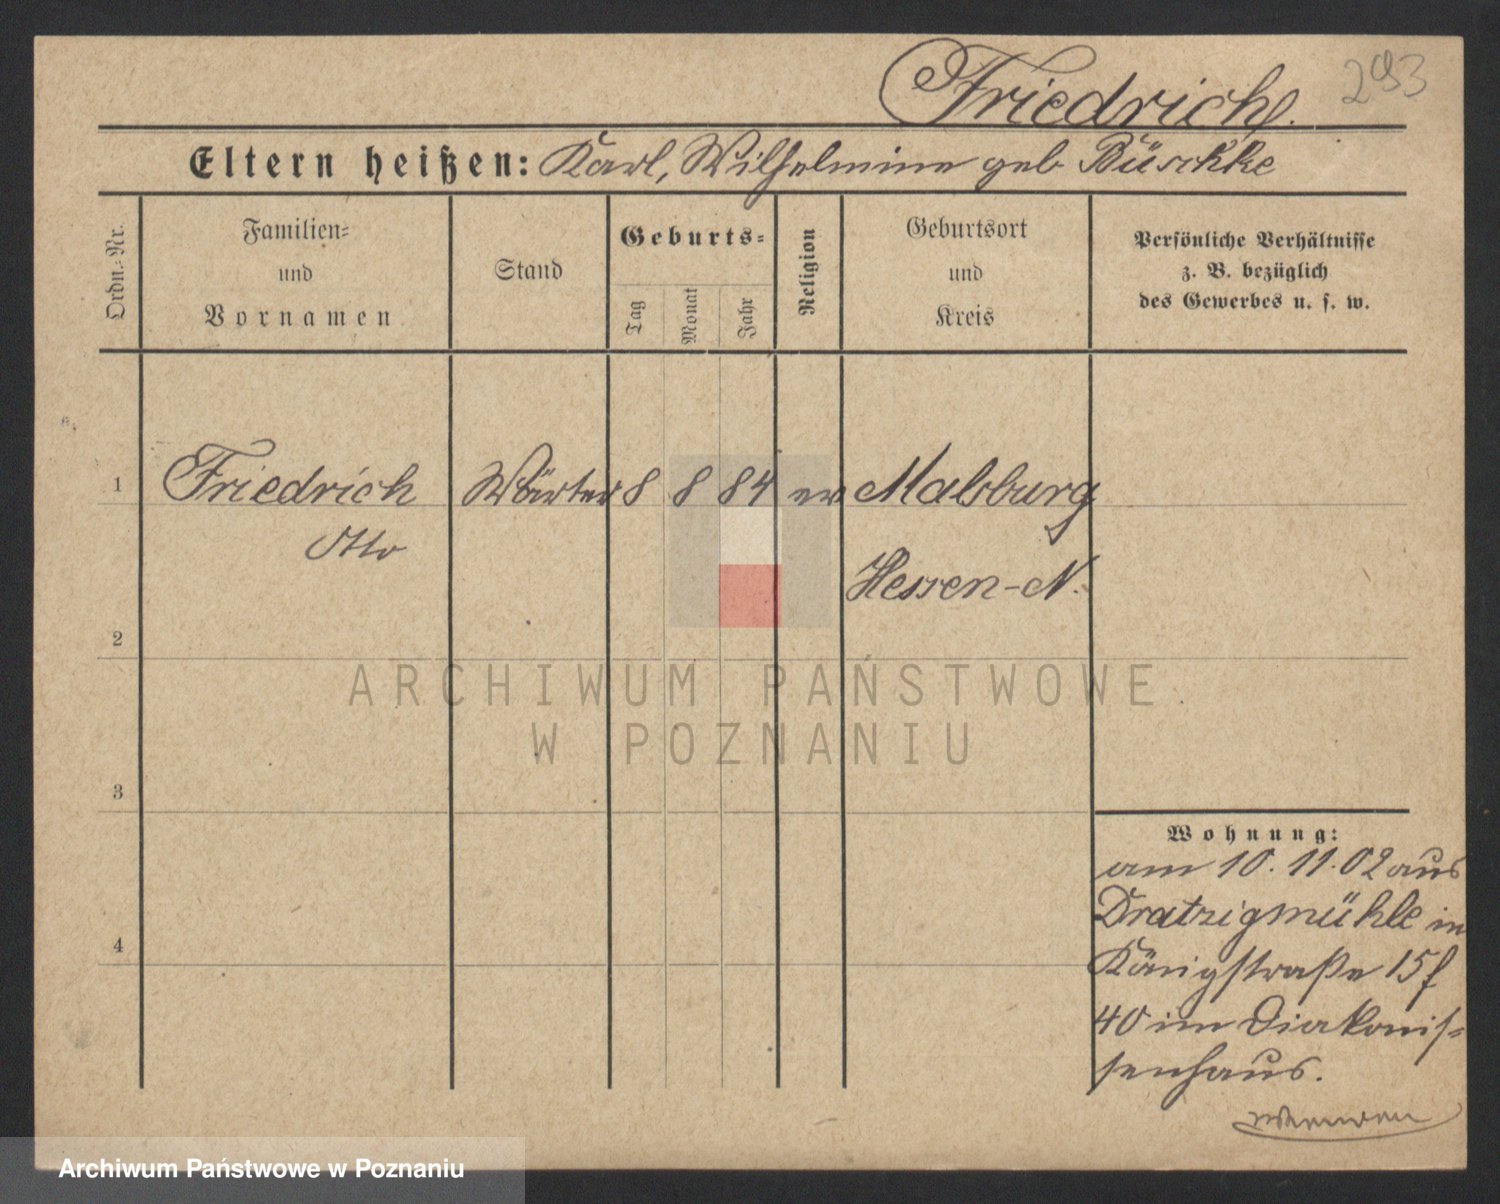 Friedrich.
293
Eltern heißen: Karl, Wilhelmine geb Büschke
Ordn.-Nr.
Familien-
und
Vornamen
Stand
Geburts-
Tag
Monat
Jahr
Religion
Geburtsort
und
Kreis
Persönliche Verhältnisse
z. B. bezüglich
des Gewerbes u. s. w.
1 Friedrich Wärter 8 8 84 ev Malsburg
Otto
Hessen-N.
2
ARCHIWUM PAŃSTWOWE
W POZNANIU
3
Wohnung:
am 10. 11. 02 aus
Dratzigmühle in
Königstraße 15 f
4
40 im Diakonis-
senhaus.
Archiwum Państwowe w Poznaniu